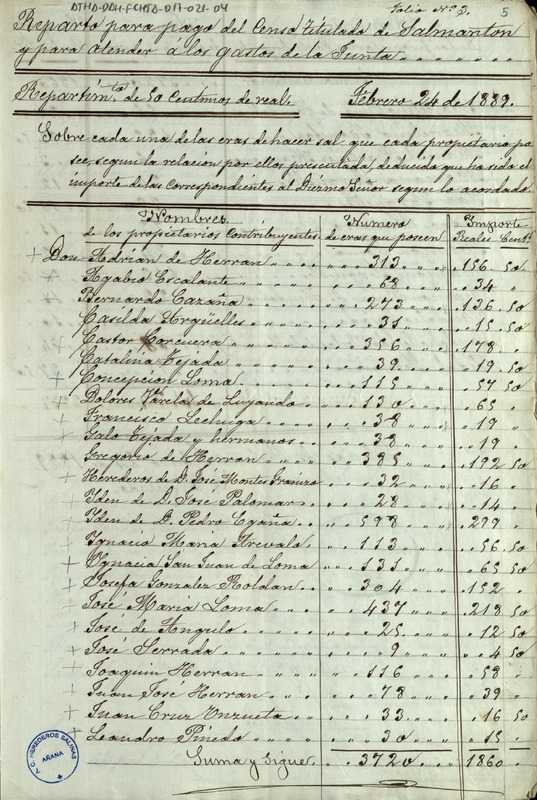 ATHA-DAH-FCHTA-017-021-04
Folio Nº 3.
5
Reparto para pago del Censo titulado de Salmanton
y para atender a los gastos de la Junta
Repartimto de 50 Centimos de real.
Febrero 24 de 1889.
Sobre cada una de las eras de hacer sal que cada propietario po
see, segun la relacion por ellos presentada, deducida que ha sido el
importe de las Correspondientes al Diezmo Señor segun lo acordado.
Nombres Numero Importe
de los propietarios Contribuyentes de eras que poseen Reales Cents
+ Don Adrian de Herran 313 156 50
+ Agabio Escalante 68 34
+ Bernardo Cazaña 273 136 50
Casilda Argüelles 31 15 50
+ Castor Corcuera 356 178
Catalina Tejada 39 19 50
+ Concepcion Loma 115 57 50
Dolores Varela de Luyando 130 65
+ Francisco Lechuga 38 19
+ Galo Tejada y hermanos 38 19
Gregorio de Herran 385 192 50
+ Herederos de D. José Montes Granizo 32 16
+ Yden de D. José Palomar 28 14
Yden de D. Pedro Egaña 598 299
+ Ygnacio Maria Arevalo 113 56 50
+ Ygnacia San Juan de Loma 131 65 50
+ Josefa Gonzalez Roldan 304 152
José Maria Loma 437 218 50
+ Jose de Angulo 25 12 50
+ Jose Serrada 9 4 50
+ Joaquin Herran 116 58
+ Juan Jose Herran 78 39
+ Juan Cruz Unzueta 33 16 50
+ Leandro Pinedo 30 15
Suma y sigue 3720 1860
Y. C. HEREDEROS SALINAS
AÑANA